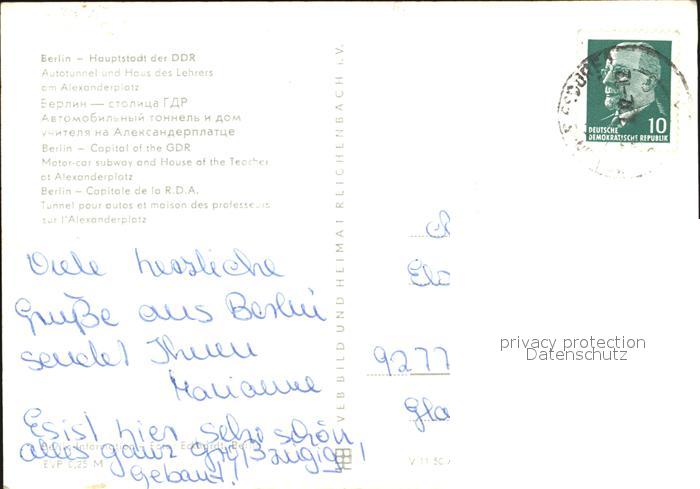 Berlin – Hauptstadt der DDR
Autotunnel und Haus des Lehrers
am Alexanderplatz
Берлин — столица ГДР
Автомобильный тоннель и дом
учителя на Александерплатце
Berlin – Capital of the GDR
Motor-car subway and House of the Teacher
at Alexanderplatz
Berlin – Capitale de la R.D.A.
Tunnel pour autos et maison des professeurs
sur l'Alexanderplatz
VEB BILD UND HEIMAT REICHENBACH i. V.
DEUTSCHE
DEMOKRATISCHE REPUBLIK
10
Viele herzliche
Grüße aus Berlin
sendet Ihnen
Marianne
Es ist hier sehr schön
alles ganz großzügig
Gebaut!
9277
Gla
privacy protection
Datenschutz
Berlin-Information
EVP 0,25 M
V 11 50